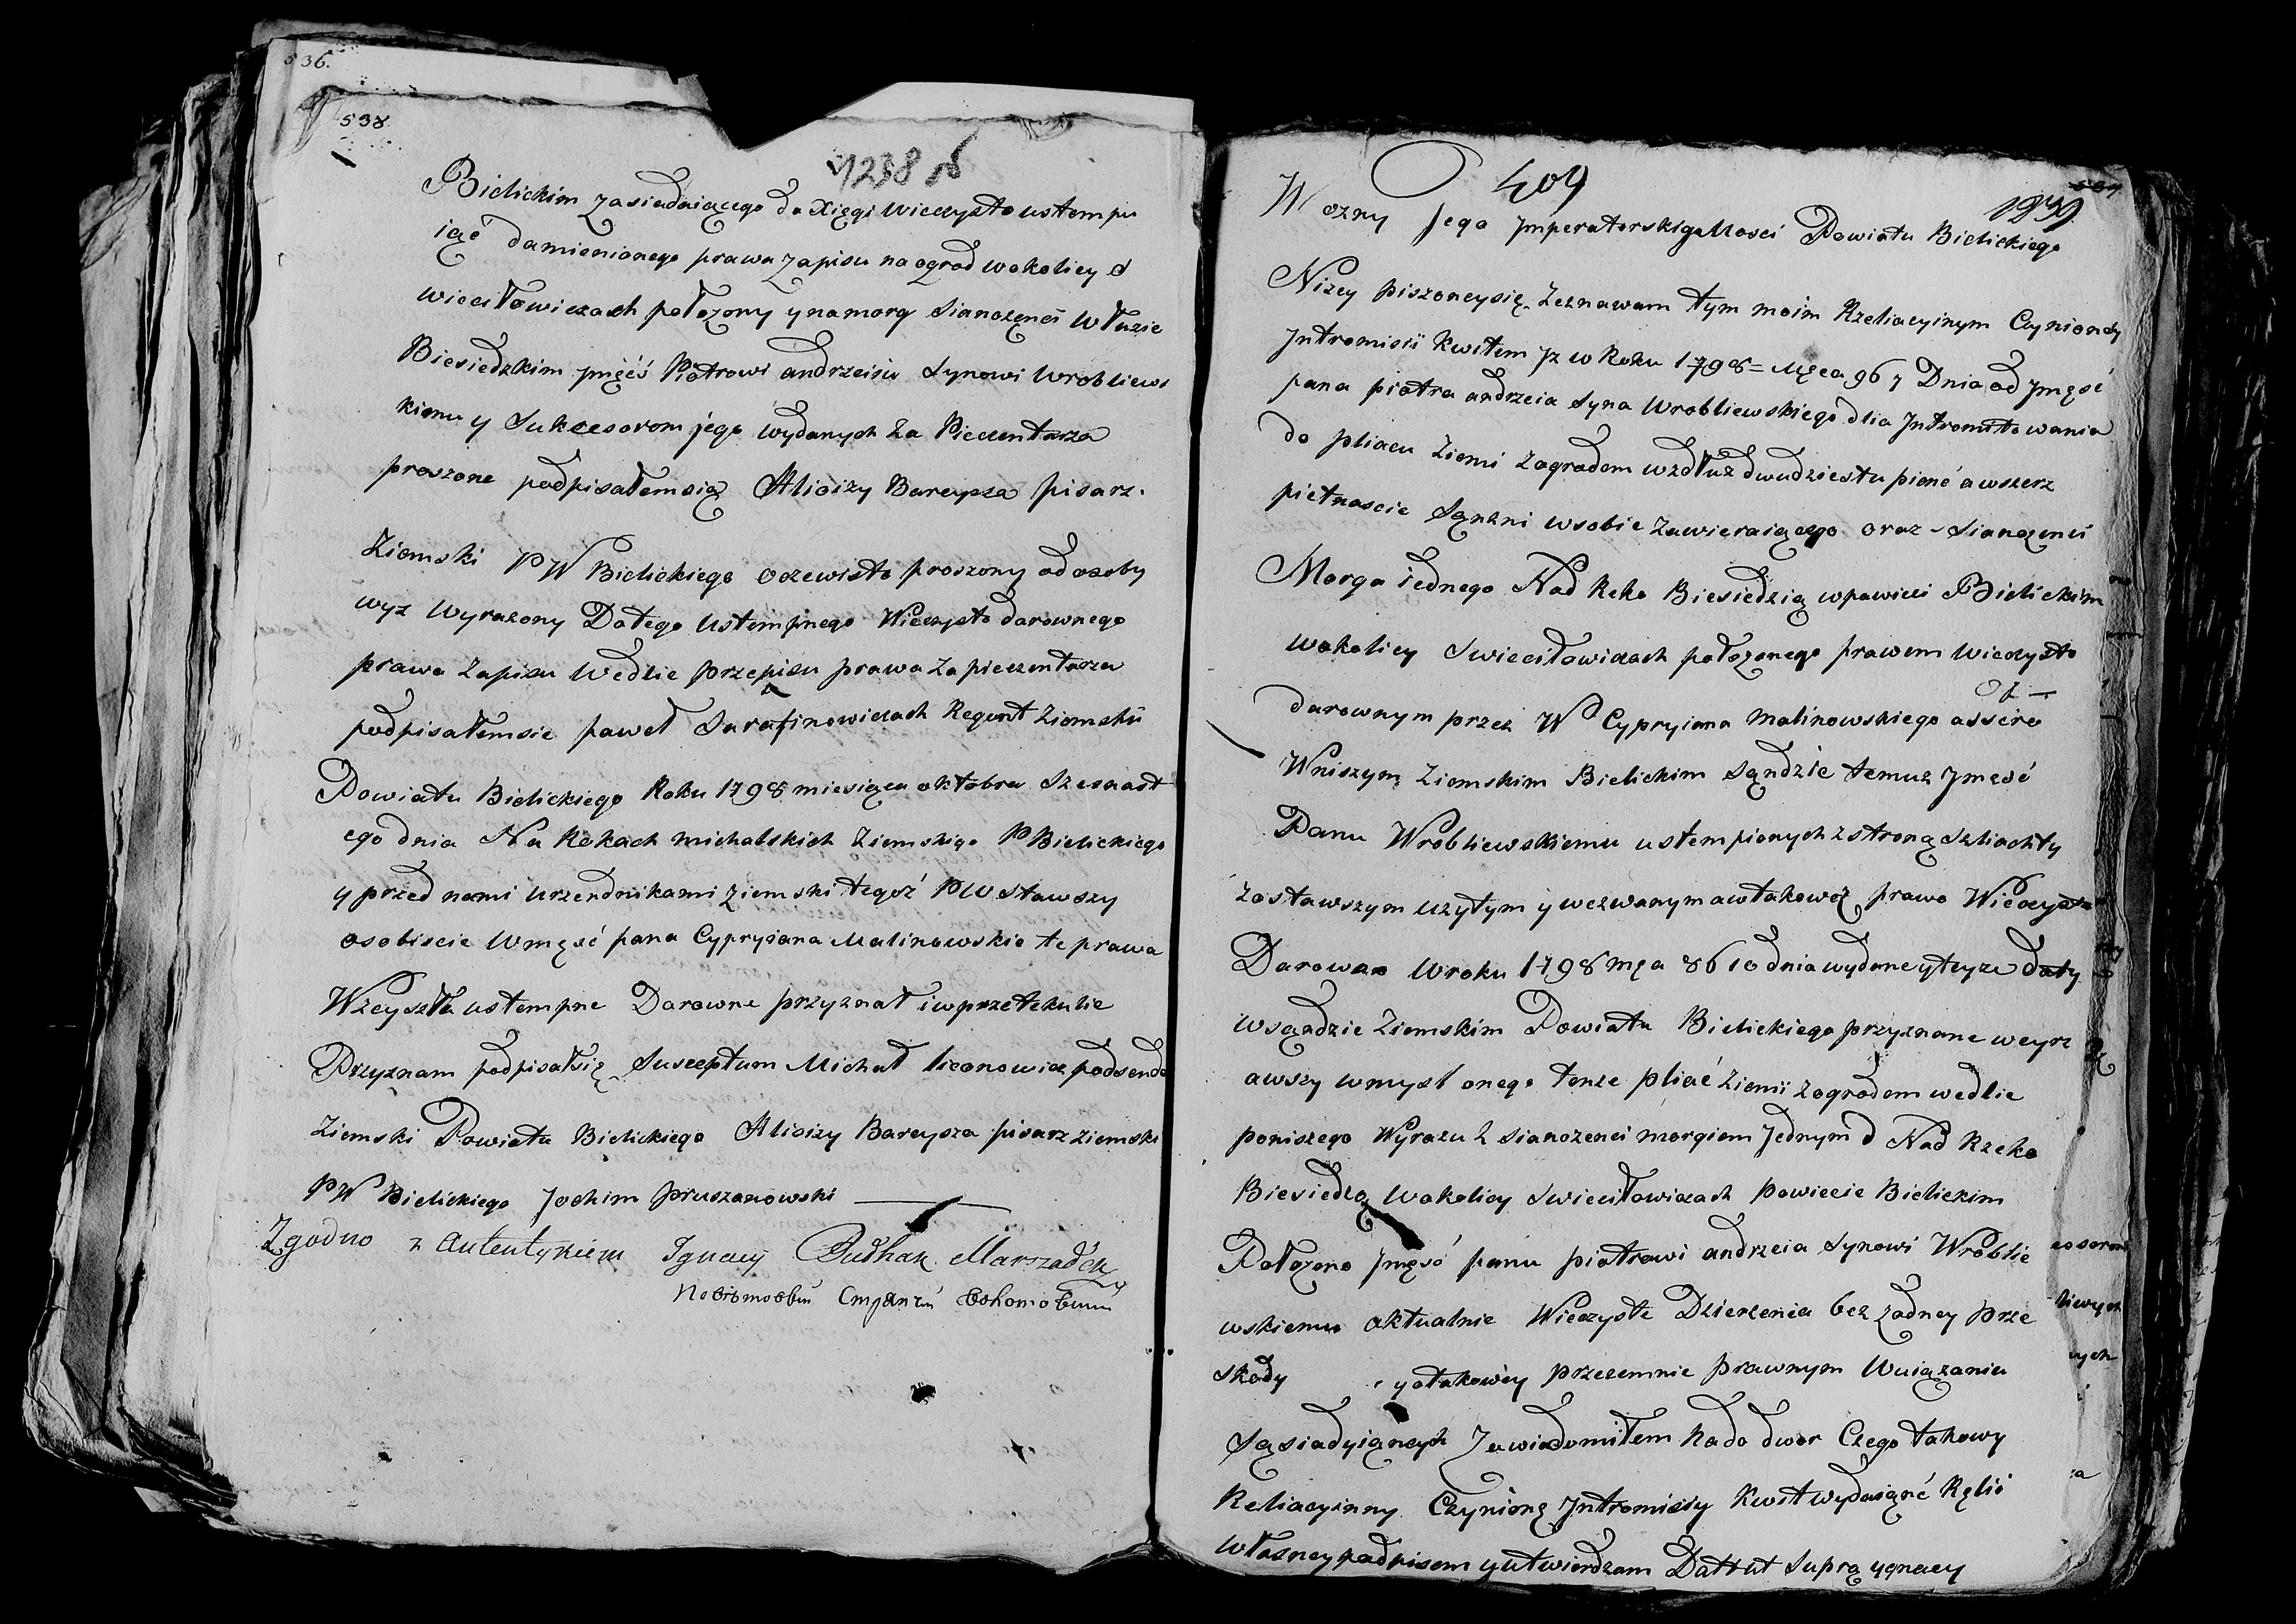 536.
538
1238
Bielickim zasiadaiącego do Xięgi wieczysto ustempu
iąć damienionego prawa zapisu na ogrod wokolicy S
wiecitowiczach położony y na morg Sianożęnci w Łuzie
Biesiedzkim jmęść Piotrowi andrzeiu Synowi Wrobliews
kiemu y Sukcesorom jego wydanych za Pieczentarza
proszone podpisałemsię Alioizy Barcysza pisarz.
Ziemski PW Bielickiego oczewisto proszony od osoby
wyz wyrazony Dotego Ustempnego Wieczysto darownego
prawa zapisu Wedlie przepisu prawa za pieczentarza
podpisałemsie paweł Sarafinowiczach Regent Ziemski
Powiatu Bielickiego Roku 1798 miesiąca oktobra Szesnast
ego dnia Na Rokach michalskich Ziemskigo P Bielickiego
y przed nami urzendnikami ziemski tegoż PW Stawszy
osobiscie Wmęść pana Cypryiana Malinowskie te prawa
Wieczysta ustempne Darowne przyznał i w przetekulie
Przyznam podpisałsię Susceptum Michał licanowicz podsendo
Ziemski Powiatu Bielickiego Alioizy Barcysza pisarz ziemski
PW Bielickiego Jochim Pruszanowski
Zgodno z Autentykiem Ignacy Marszałek
409
1239
Wozny Jego Jmperatorskigo Mosci Powiatu Bielickiego
Nizey piszoncysię Zeznawam tym moim Rzeliacyinym Czyniondy
Jntromisii Kwitem jz w Roku 1798 = Męca 96 7 Dnia od Jmęść
pana piotra andrzeia Syna Wrobliewskiego dlia Jntromitowania
do pliacu Ziemi Zogrodem wzdłuż dwudziestu pienć a wszerz
pietnascie Sąnżni wsobie Zawieraiącego oraz Sianożenci
Morga iednego Nad Reko Biesiedzią wpowieci Bielickim
wokolicy Swiecitowiczach położonego prawem wieczysto
darownym przez W Cypryiana Malinowskiego assiro
Wniszym Ziemskim Bielickim Sąndzie temuz Jmęść
Panu Wrobliewskiemu ustempionych z stroną Szliachty
zostawszym użytym y wezwanym a wtakowoż prawo Wieczysto
Darowao Wroku 1798 męa 86 10 dnia wydane y teyze daty
wsąndzie Ziemskim Powiatu Bielickiego przyznane weyrz
awszy wmysl onego tenze pliać Ziemi Zogrodem wedlie
poniszego Wyrazu z Sianożenci morgiem Jednym d Nad Rzeko
Biesiedzą Wokolicy Swiecitowiczach Powiecie Bielickim
Położono Jmęść panu piotrowi andrzeia Synowi Wroblie
wskiemu aktualnie Wieczyste Dzierżenia bez żadney prze
skody y otakowéy przezemnie prawnym Wuiązaniu
Sąsiadyiących Jawiadomiłem Kado dwor Czego takowy
Reliacyinny Czynioną Jntromisiy Kwit wydaiąnć Ręlió
Własney podpisem y utwierdzam Dattut Suprą ygnacy